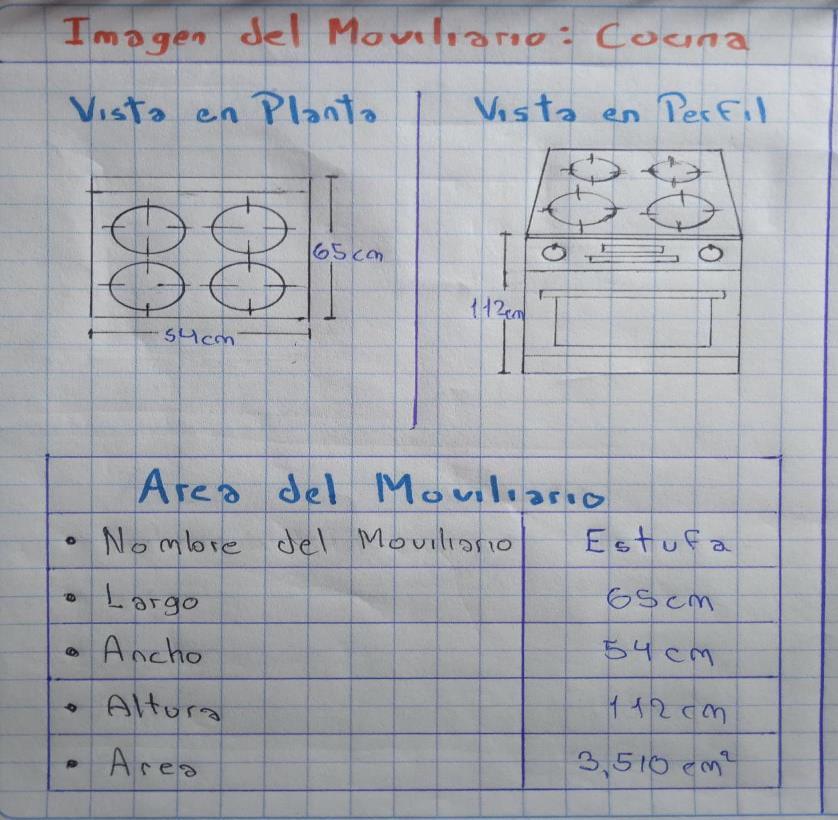 Imagen del Moviliario: Cocina
Vista en Planta
Vista en Perfil
65cm
54cm
112cm
Area del Moviliario
• Nombre del Moviliario Estufa
• Largo 65cm
• Ancho 54cm
• Altura 112cm
• Area 3,510 cm²